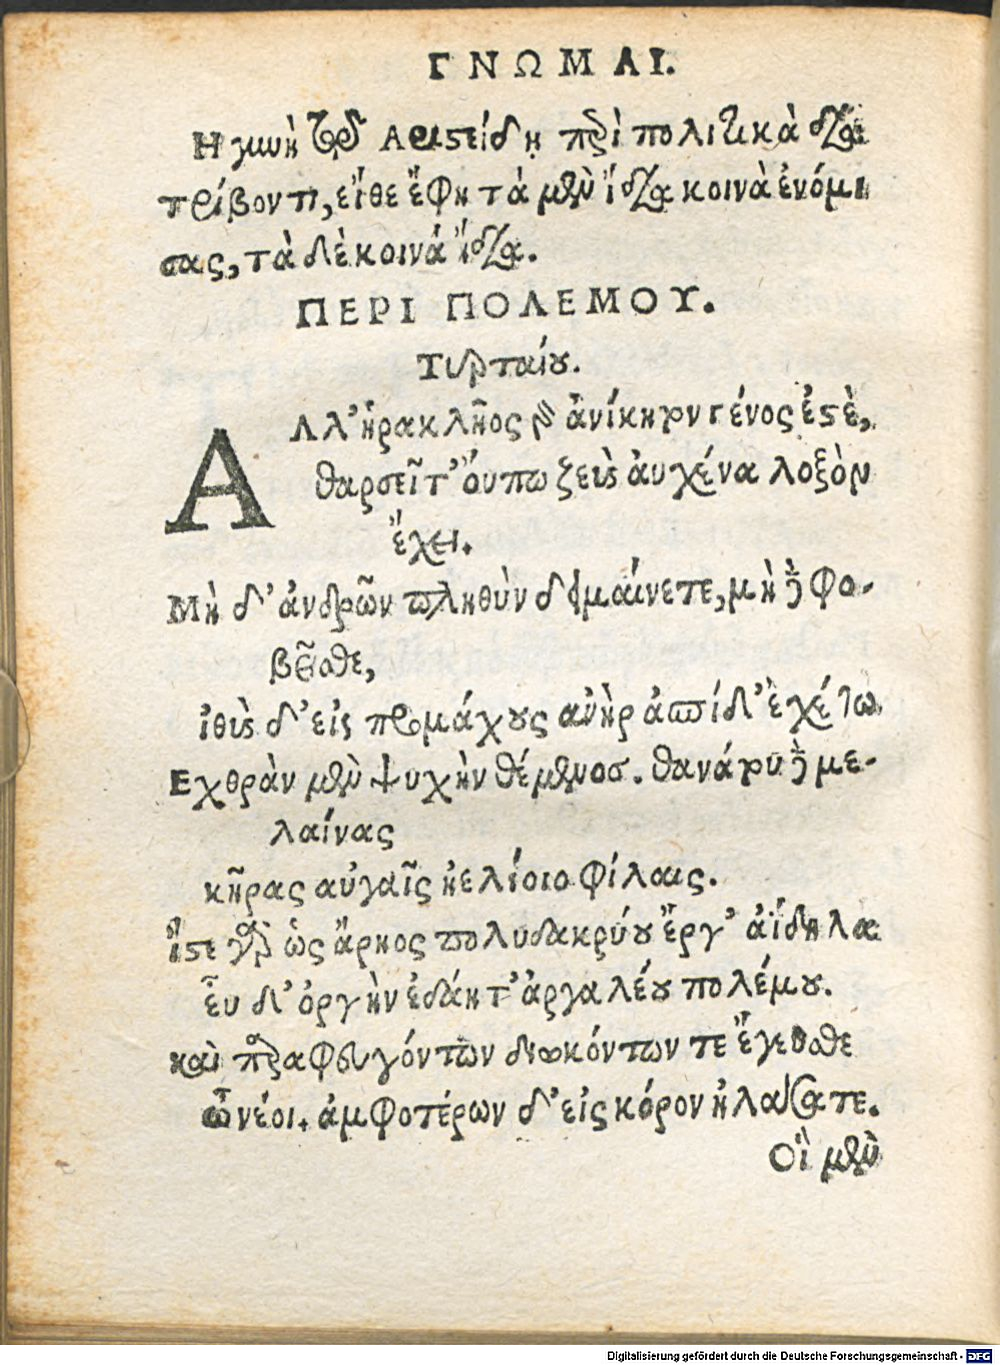 ΓΝΩΜΑΙ.
Η γυνὴ τοῦ Αριστείδῃ περὶ πολιτικὰ δια
τρίβοντι, εἴθε ἔφη τὰ μὲν ἴδια κοινὰ ἐνόμι
σας, τὰ δὲ κοινά ἴδια.
ΠΕΡΙ ΠΟΛΕΜΟΥ.
Τυρταίου.
ΑΛλ' ἡρακλῆος γὰρ ἀνίκητον γένος ἐστὲ,
θαρσεῖτ' ὄυπω ζεὺς ἀυχένα λοξὸν
ἔχει.
Μὴ δ' ἀνδρῶν πληθὺν δειμαίνετε, μὴ δὲ φο-
βεῖσθε,
ἰθὺς δ' εἰς προμάχους ἀνὴρ ἀσπίδ' ἐχέτω
Εχθρὰν μὲν ψυχὴν θέμενος. θανάτου δὲ με-
λαίνας
κῆρας αὐγαῖς ἠελίοιο φίλαις.
ἴστε γὰρ ὡς ἄρηος πολυδακρύου ἔργ' ἀίδηλα
εὖ δ' ὀργὴν ἐδάητ' ἀργαλέου πολέμου.
καὶ παραφευγόντων διωκόντων τε ἔγευσθε
ὦ νέοι. ἀμφοτέρων δ' εἰς κόρον ἠλάσατε.
Οἳ μὲν
Digitalisierung gefördert durch die Deutsche Forschungsgemeinschaft - DFG